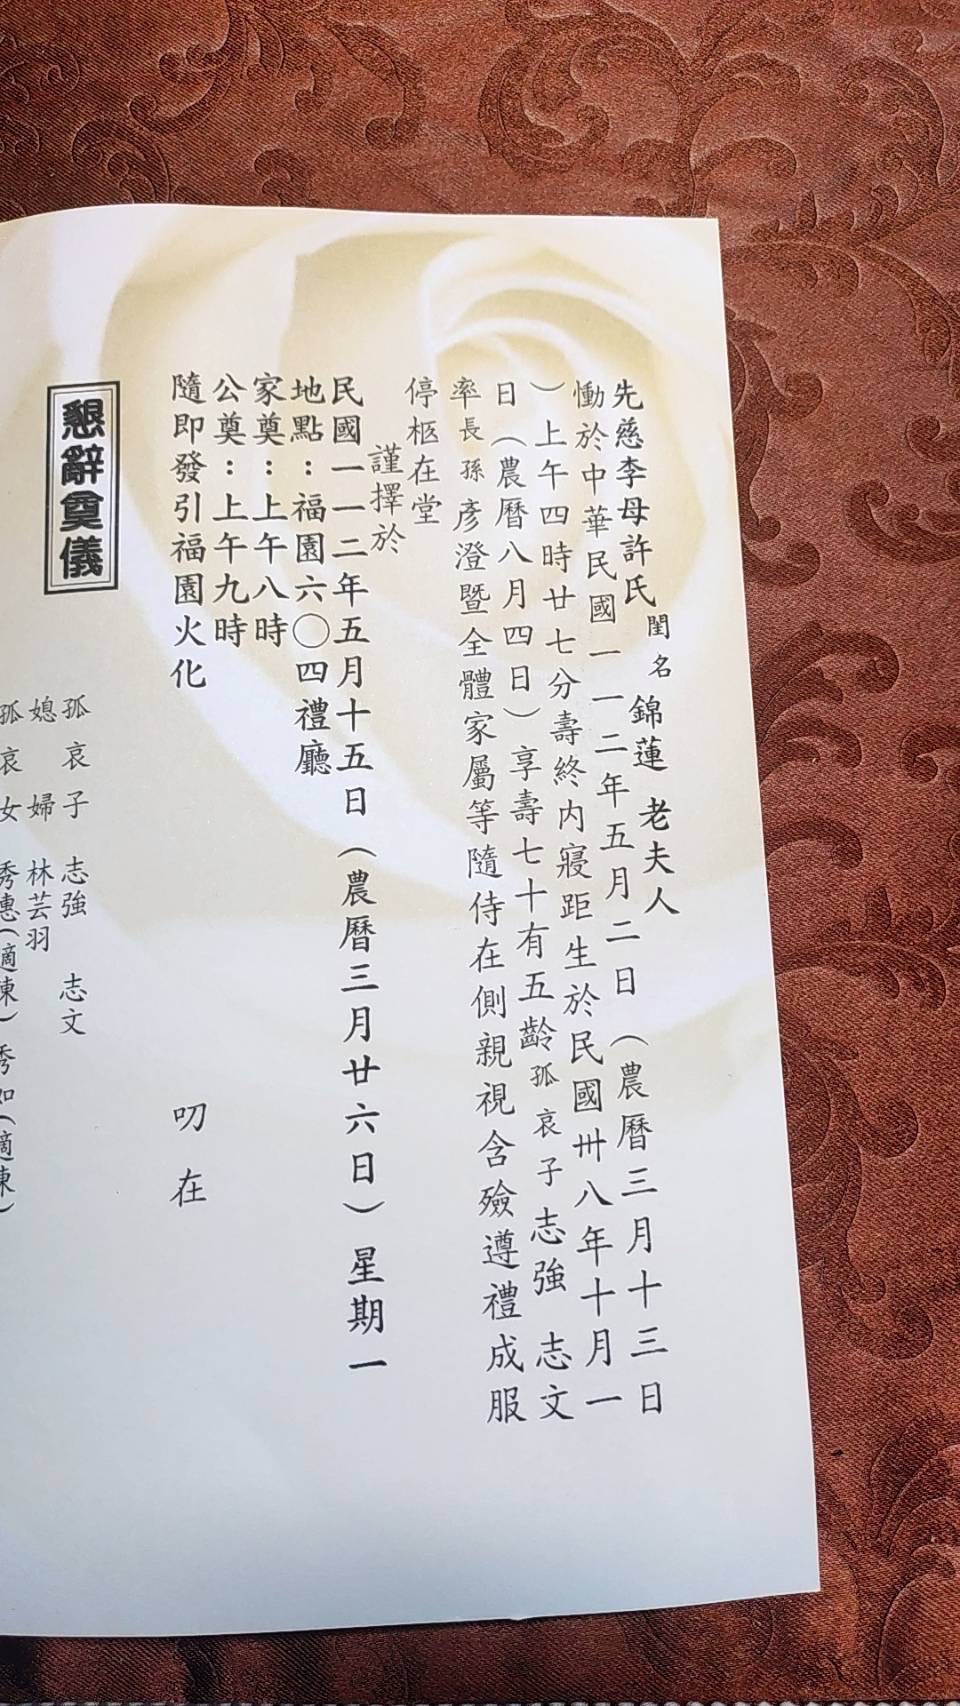 先慈李母許氏閨名錦蓮老夫人
慟於中華民國一一二年五月二日（農曆三月十三日
）上午四時廿七分壽終內寢距生於民國卅八年十月一
日（農曆八月四日）享壽七十有五齡孤哀子志強 志文
率長孫彥澄暨全體家屬等隨侍在側親視含殮遵禮成服
停柩在堂
謹擇於
民國一一二年五月十五日（農曆三月廿六日）星期一
地點：福園六〇四禮廳
家奠：上午八時
公奠：上午九時
隨即發引福園火化
叨在
懇辭奠儀
孤哀子 志強 志文
媳婦 林芸羽
孤哀女 秀惠（適陳）秀如（適陳）